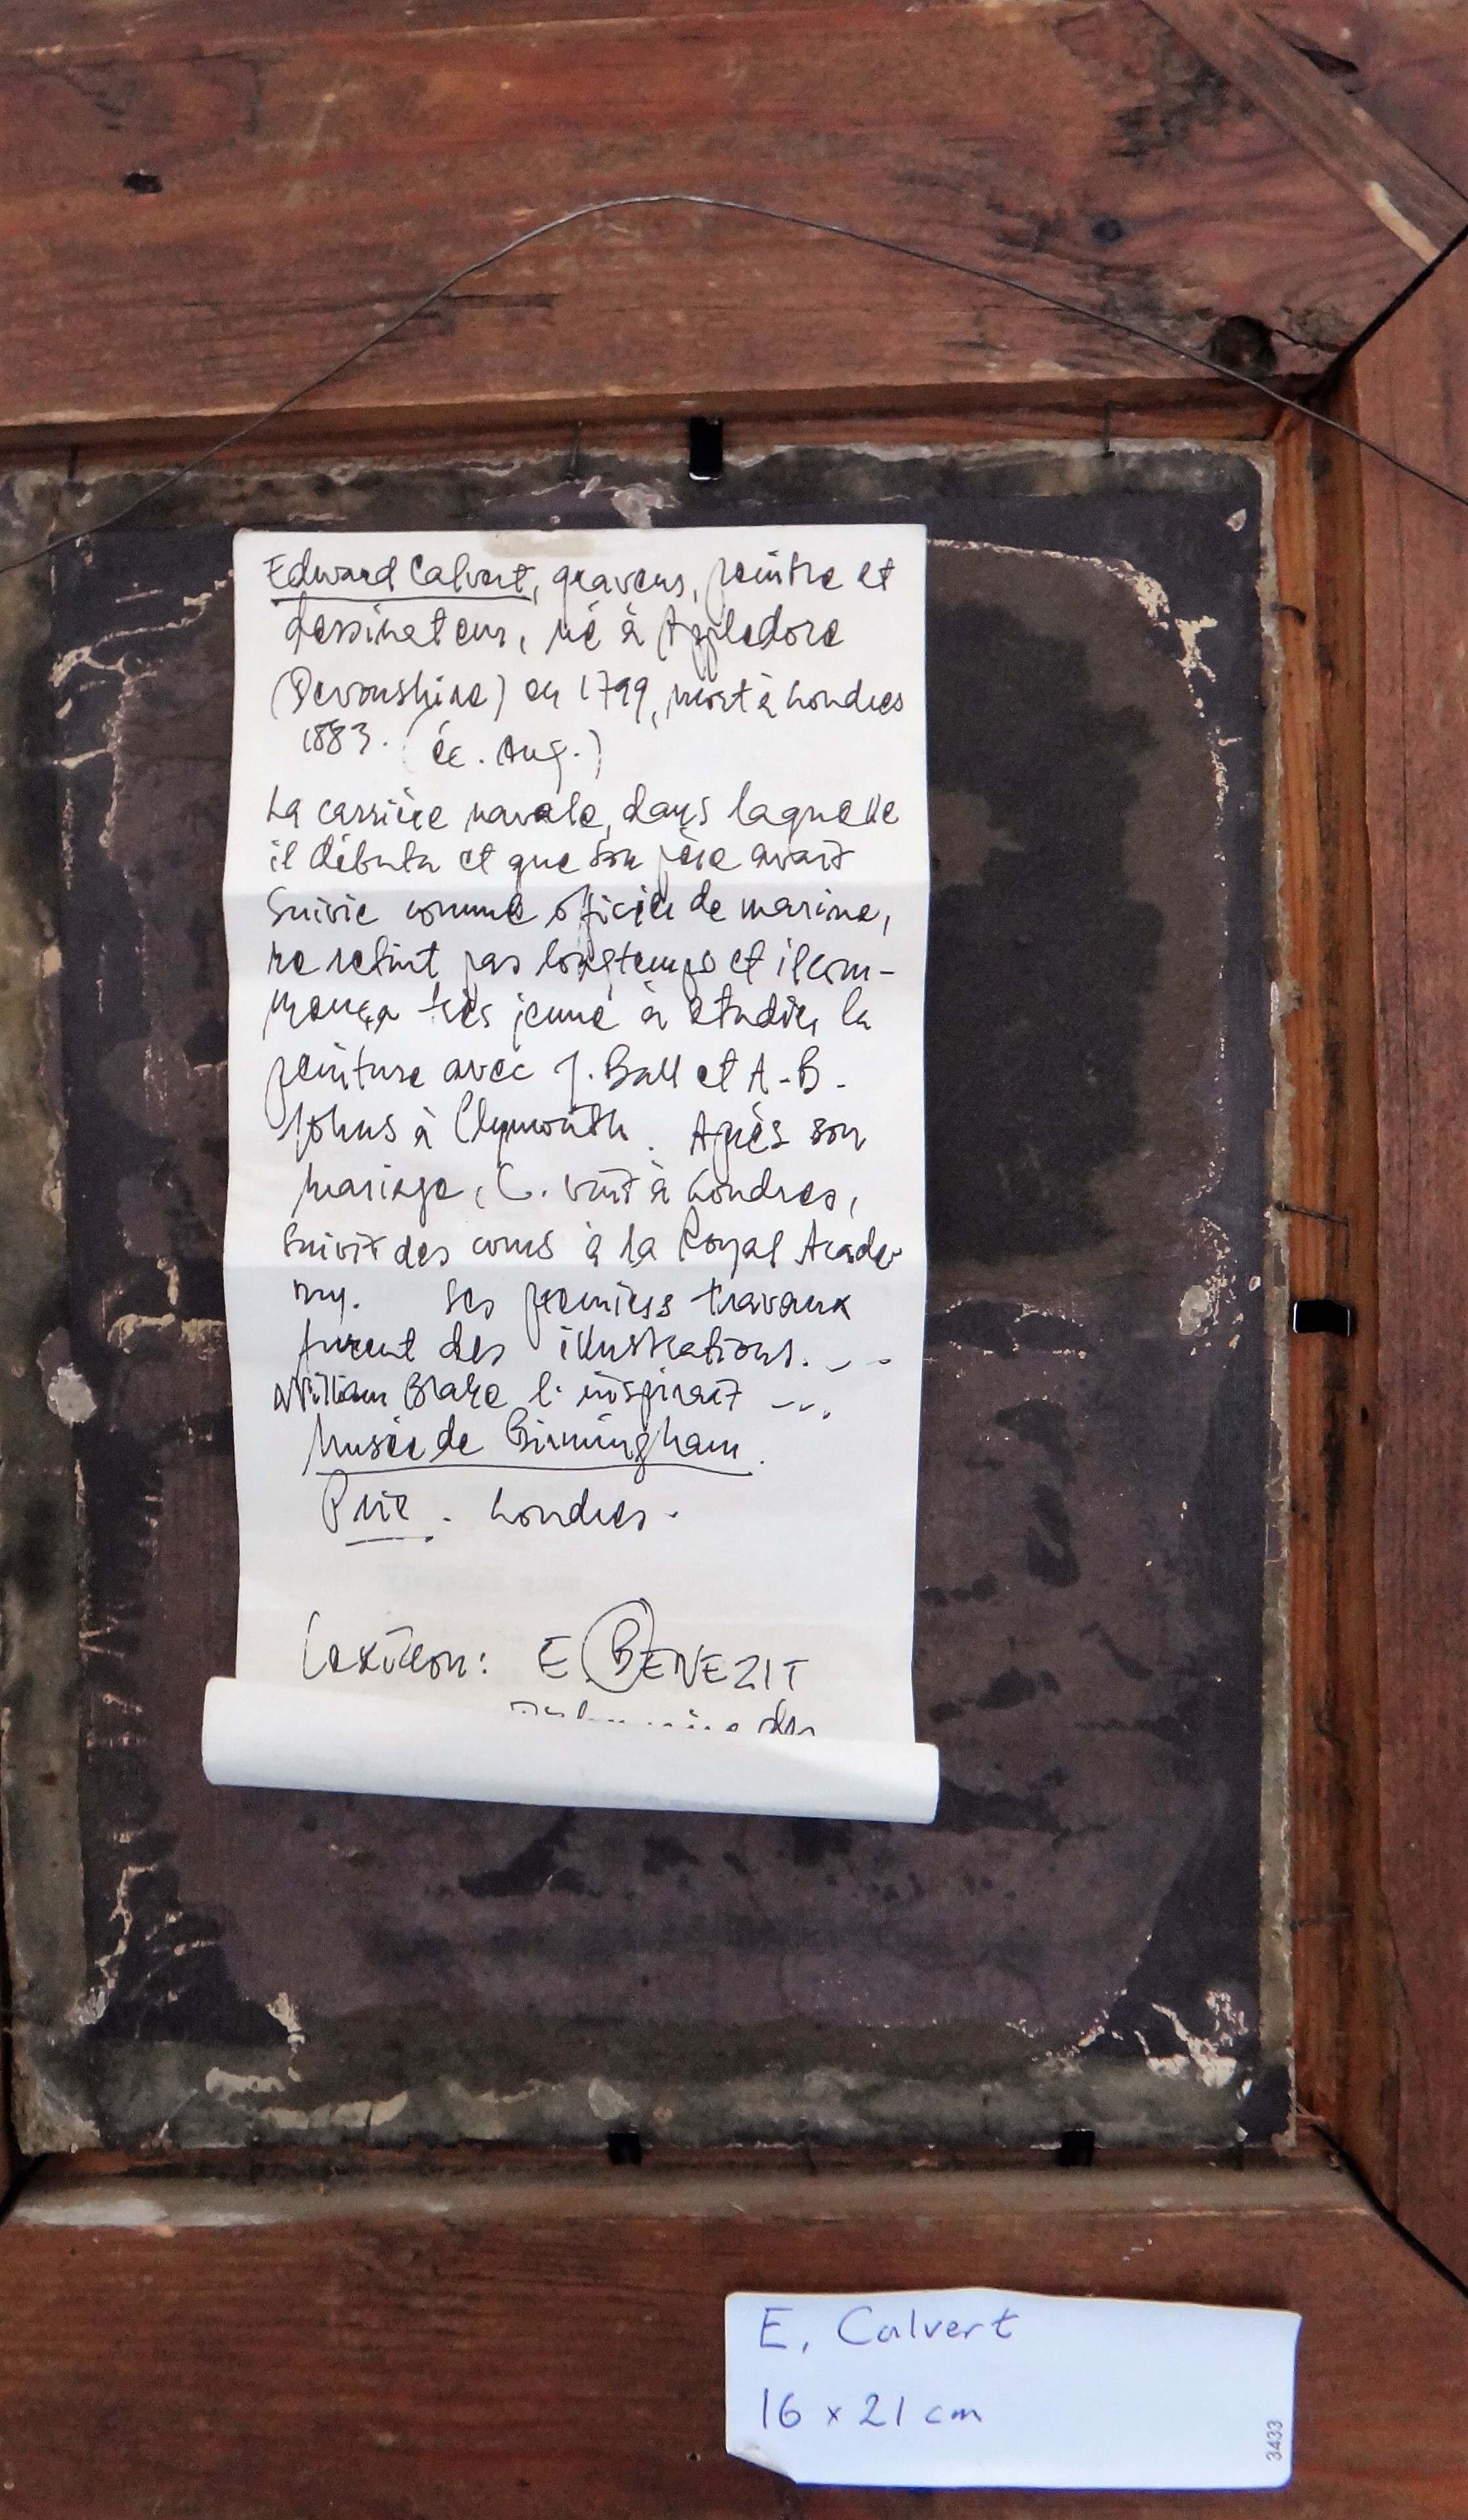 Edward Calvert, graveur, peintre et
dessinateur, né à Appledore
(Devonshire) en 1799, mort à Londres
1883. (éc. Ang.)
La carrière navale, dans laquelle
il débuta et que son père avait
suivie comme officier de marine,
ne retint pas longtemps et il com-
mença très jeune à étudier la
peinture avec J. Ball et A-B-
Johns à Plymouth. Après son
mariage, C. vint à Londres,
suivit des cours à la Royal Acade-
my. Ses premiers travaux
furent des illustrations. - -
William Blake l'inspirait ---
Musée de Birmingham.
Londres.
Lexicon: E. BENEZIT
des
E. Calvert
16 x 21 cm
3433